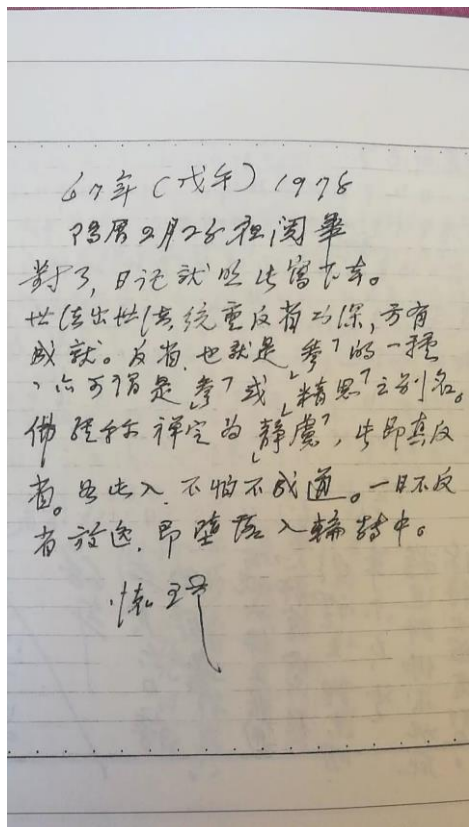 67年(戊午)1978
陽曆2月26夜閱畢
對了,日记就照此寫下去。
世法出世法,統重反省功深,方有
成就。反省,也就是「參」的一種
、亦可謂是「參」或「精思」之别名。
佛經称禅定為「静慮」,此即真反
省。由此入,不怕不成道。一日不反
省放逸,即墮落入輪轉中。
懷瑾